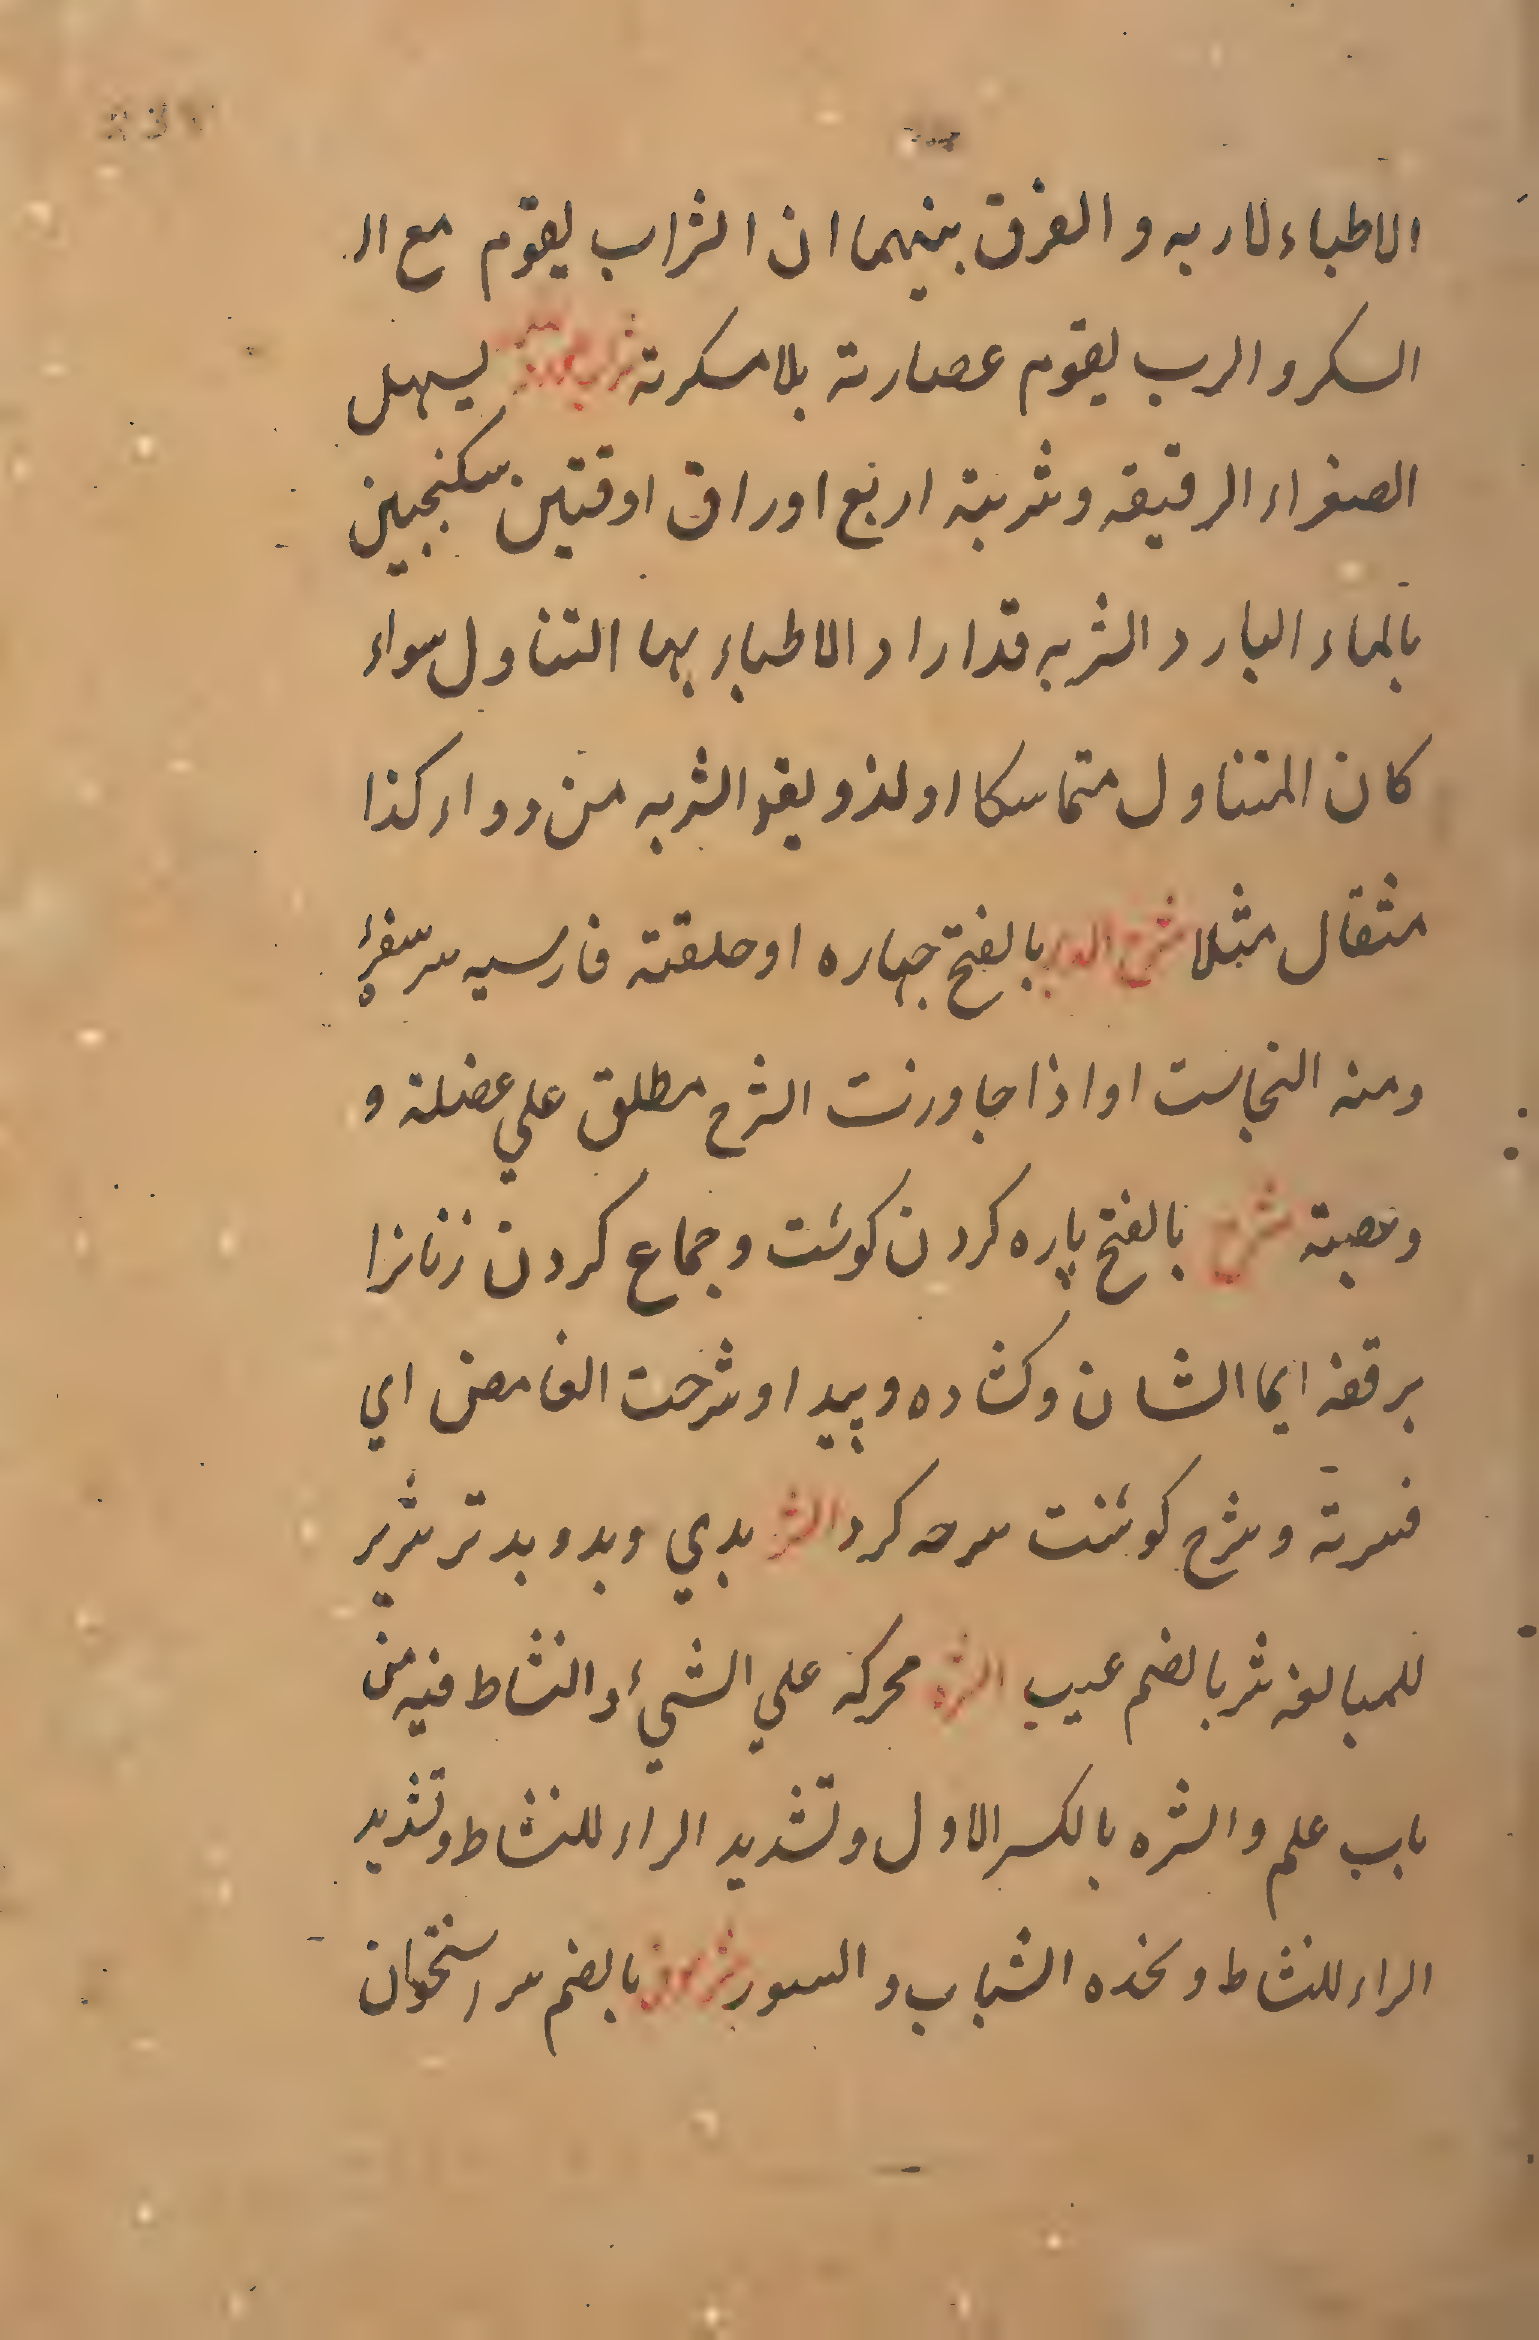 الاطباء لاربه و الفرق بينهما ان الشراب يقوم مع ال
السكر و الرب يقوم عصارته بلا سكرته يسهل
الصفراء الرقيقه و شربته اربع اوراق اوقتين سكنجبين
بالماء البارد الشربه قدارا د الاطباء بها التناول سواء
كان المتناول متماسكا اولذو يغو الشربه من دواء كذا
مثقال مثلا شرج الدبر بالفتح جهاره او حلقته فارسيه سر سفره
ومنه النجاست او اذا جاورت الشرج مطلق علي عضلة و
وعصبة شرح بالفتح پاره كردن كوشت و جماع كردن زنانرا
برقفه ايما الشان و كشاده و پيدا و شرحت الغامض اي
فسرته و شرح كوشت سرحه كرد الشر بدي و بد و بدتر شرير
للمبالغه شر بالضم عيب الشره محركه علي الشيء و النشاط فيه من
باب علم و الشره بالكسر الاول و تشديد الراء للنشاط و تشديد
الراء للنشاط و نخذه الشباب و السور بالضم سر استخوان